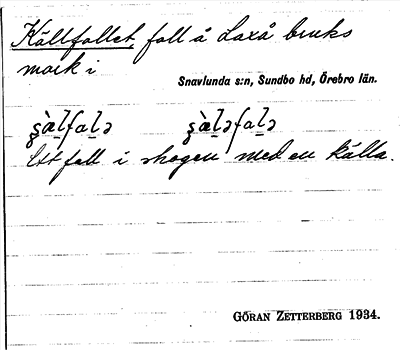 Källfallet, fall å Laxå bruks
mark i
Snavlunda s:n, Sundbo hd, Örebro län.
Ett fall i skogen med en källa.
GÖRAN ZETTERBERG 1934.